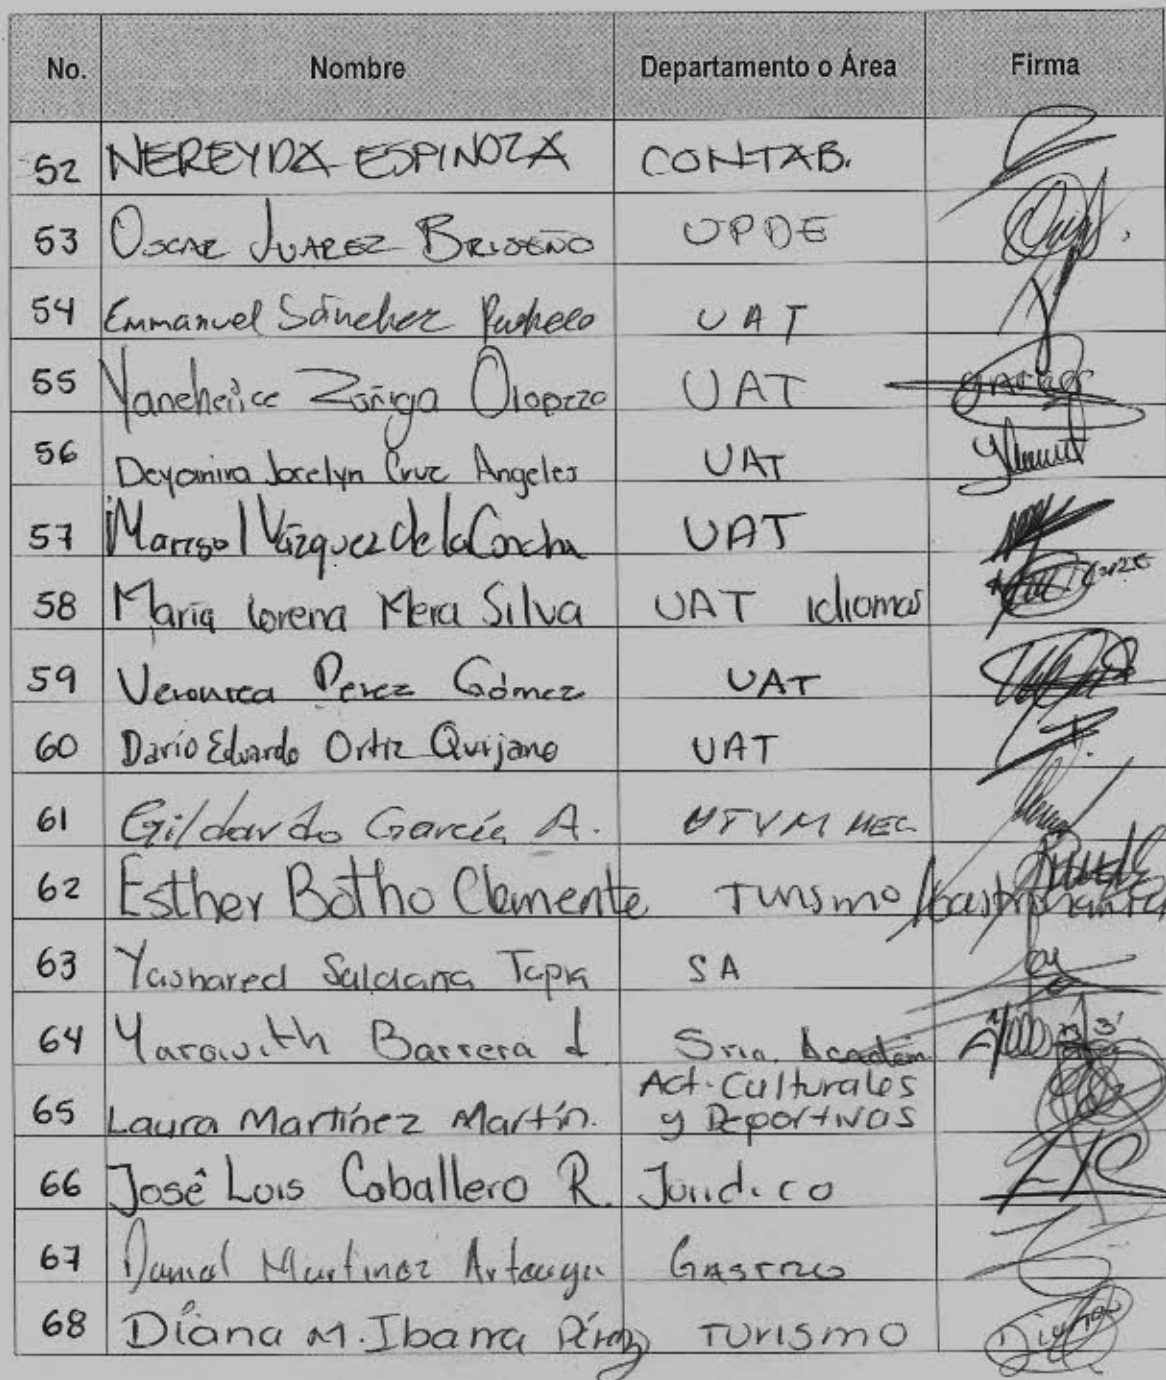 No. Nombre Departamento o Área Firma
52 NEREYDA ESPINOZA CONTAB.
53 OSCAR JUAREZ BRISEÑO UPDE
54 Emmanuel Sánchez Pacheco UAT
55 Zúñiga UAT
56 Deyanira Jocelyn Cruz Angeles UAT
57 Marisol Vázquez de la Concha UAT
58 María Lorena Mera Silva UAT idiomas
59 Veronica Perez Gómez UAT
60 Darío Eduardo Ortiz Quijano UAT
61 Gildardo García A. UTVM MEC
62 Esther Botho Clemente Turismo /
63 Yashared Saldaña Tapia SA
64 Barrera Sria. Academ
Act. Culturales
65 Laura Martínez Martín. y Deportivas
66 José Luis Caballero R. Jurídico
67 Daniel Martinez GASTRO
68 Diana M. Ibarra Pérez Turismo